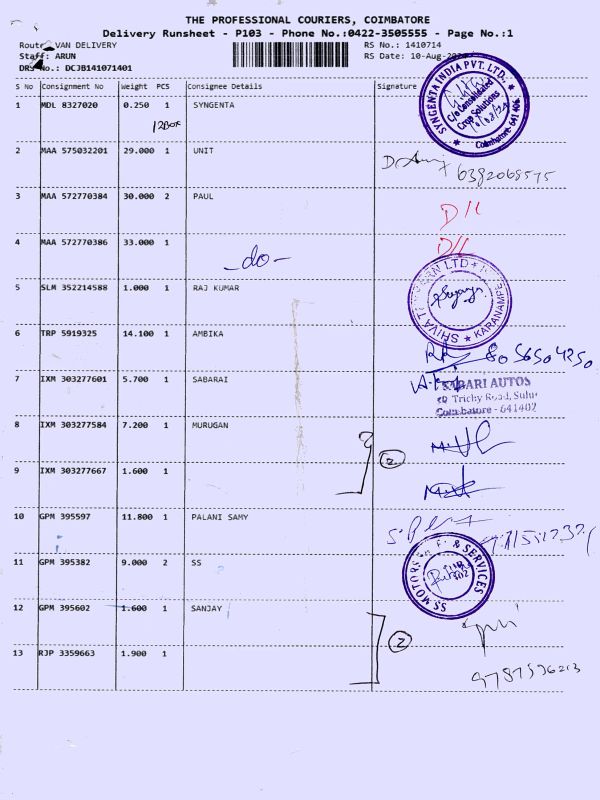 THE PROFESSIONAL COURIERS, COIMBATORE
Delivery Runsheet - P103 - Phone No.:0422-3505555 - Page No.:1
Route: VAN DELIVERY RS No.: 1410714
Staff: ARUN RS Date: 10-Aug-
DRS No.: DCJB141071401
S No Consignment No Weight PCS Consignee Details Signature
1 MDL 8327020 0.250 1 SYNGENTA
12Box
SYNGENTA INDIA PVT. LTD.,
C/o Consolidated
Crop Solutions
Coimbatore 641 406
2 MAA 575032201 29.000 1 UNIT
6382068575
3 MAA 572770384 30.000 2 PAUL
D/L
4 MAA 572770386 33.000 1
D/L
-do-
5 SLM 352214588 1.000 1 RAJ KUMAR
6 TRP 5919325 14.100 1 AMBIKA
8056504250
7 IXM 303277601 5.700 1 SABARAI
SABARI AUTOS
Trichy Road, Sulur
Coimbatore - 641402
8 IXM 303277584 7.200 1 MURUGAN
2
9 IXM 303277667 1.600 1
10 GPM 395597 11.800 1 PALANI SAMY
11 GPM 395382 9.000 2 SS
SS MOTORS & SERVICES
12 GPM 395602 1.600 1 SANJAY
2
13 RJP 3359663 1.900 1
9787596213